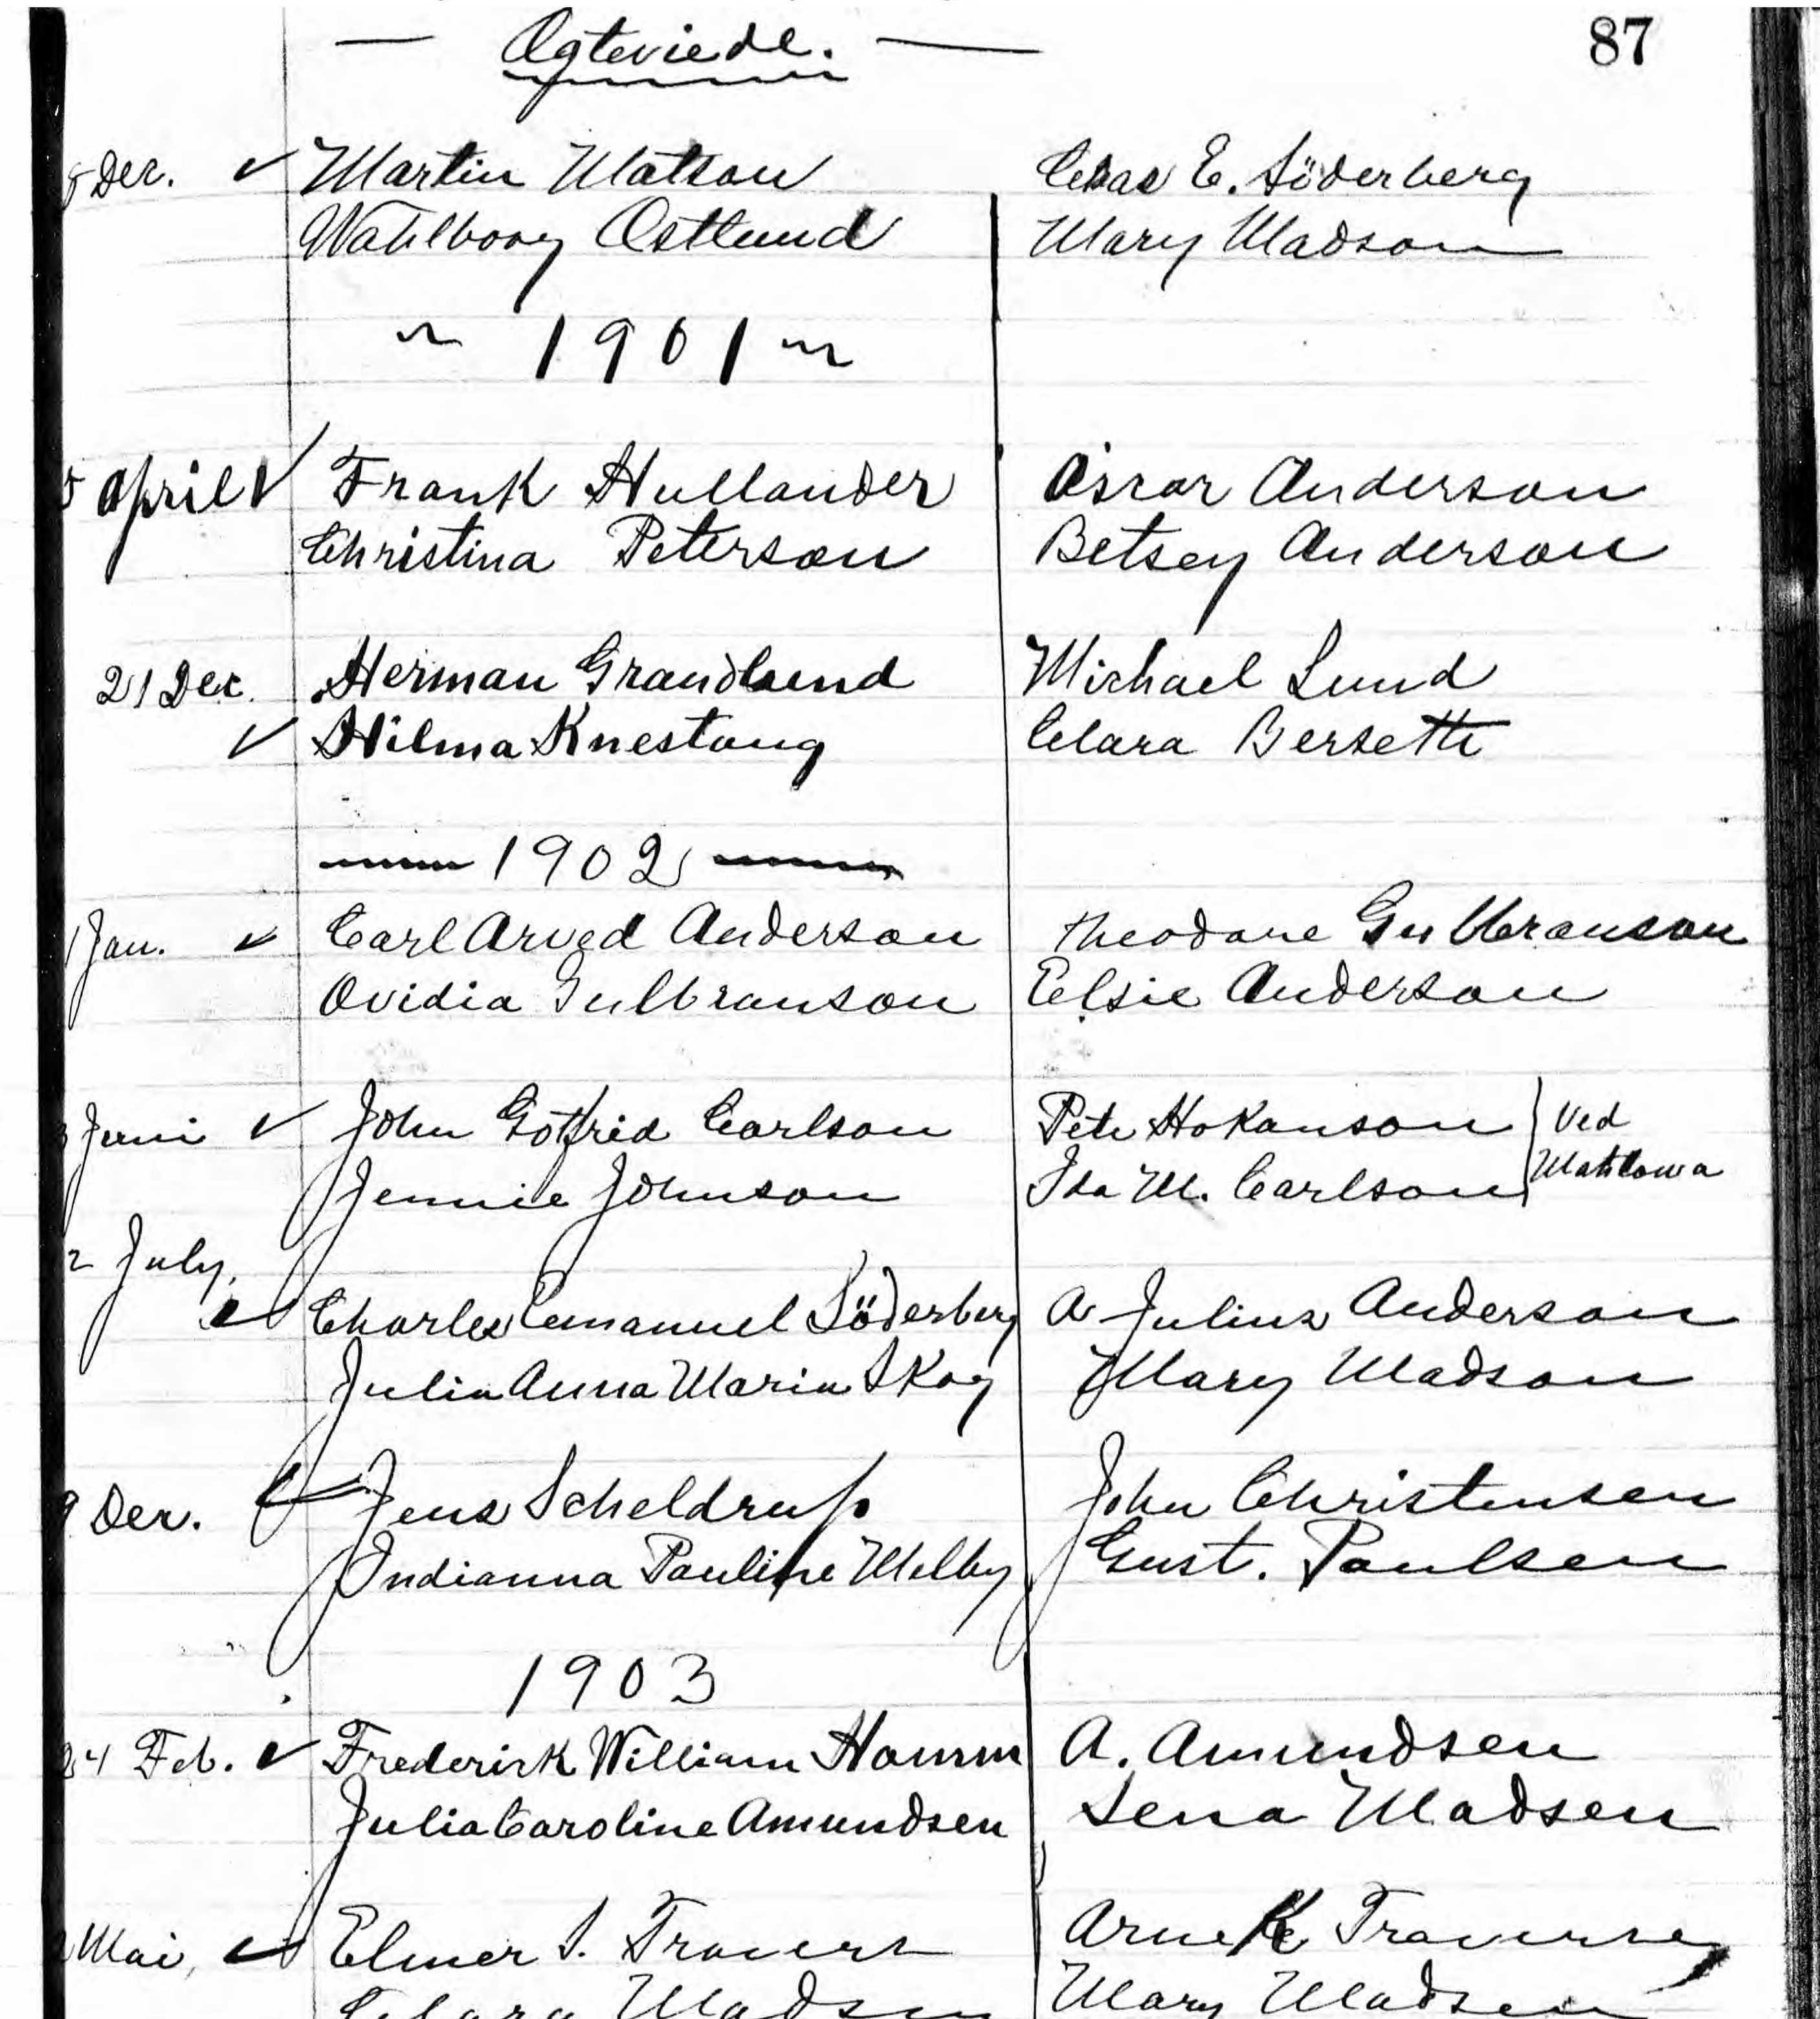 — Ægteviede. — 87
Dec. Martin Matson Chas E. Söderberg
Wahlborg Ostlund Mary Madson
~ 1901 ~
5 April Frank Hullander Oscar Anderson
Christina Peterson Betsey Anderson
21 Dec. Herman Grandlund Michael Lund
Hilma Knestang Clara Berseth
1902
1 Jan. Carl Arved Anderson Theodore Gulbranson
Ovidia Gulbranson Elsie Anderson
Juni John Gotfrid Carlson Pete Hokanson } Ved
Jennie Johnson Ida M. Carlson } Mahtowa
2 July,
Charles Emanuel Söderberg A Julius Anderson
Julia Anna Maria Skog Mary Madson
9 Dec. Jens Scheldrup John Christensen
Indianna Pauline Melby Gust. Paulsen
1903
24 Feb. Frederick William Hamm A. Amundsen
Julia Caroline Amundsen Lena Madsen
Mai, Elmer S. Travers Arne Traverse
Clara Madsen Mary Madsen